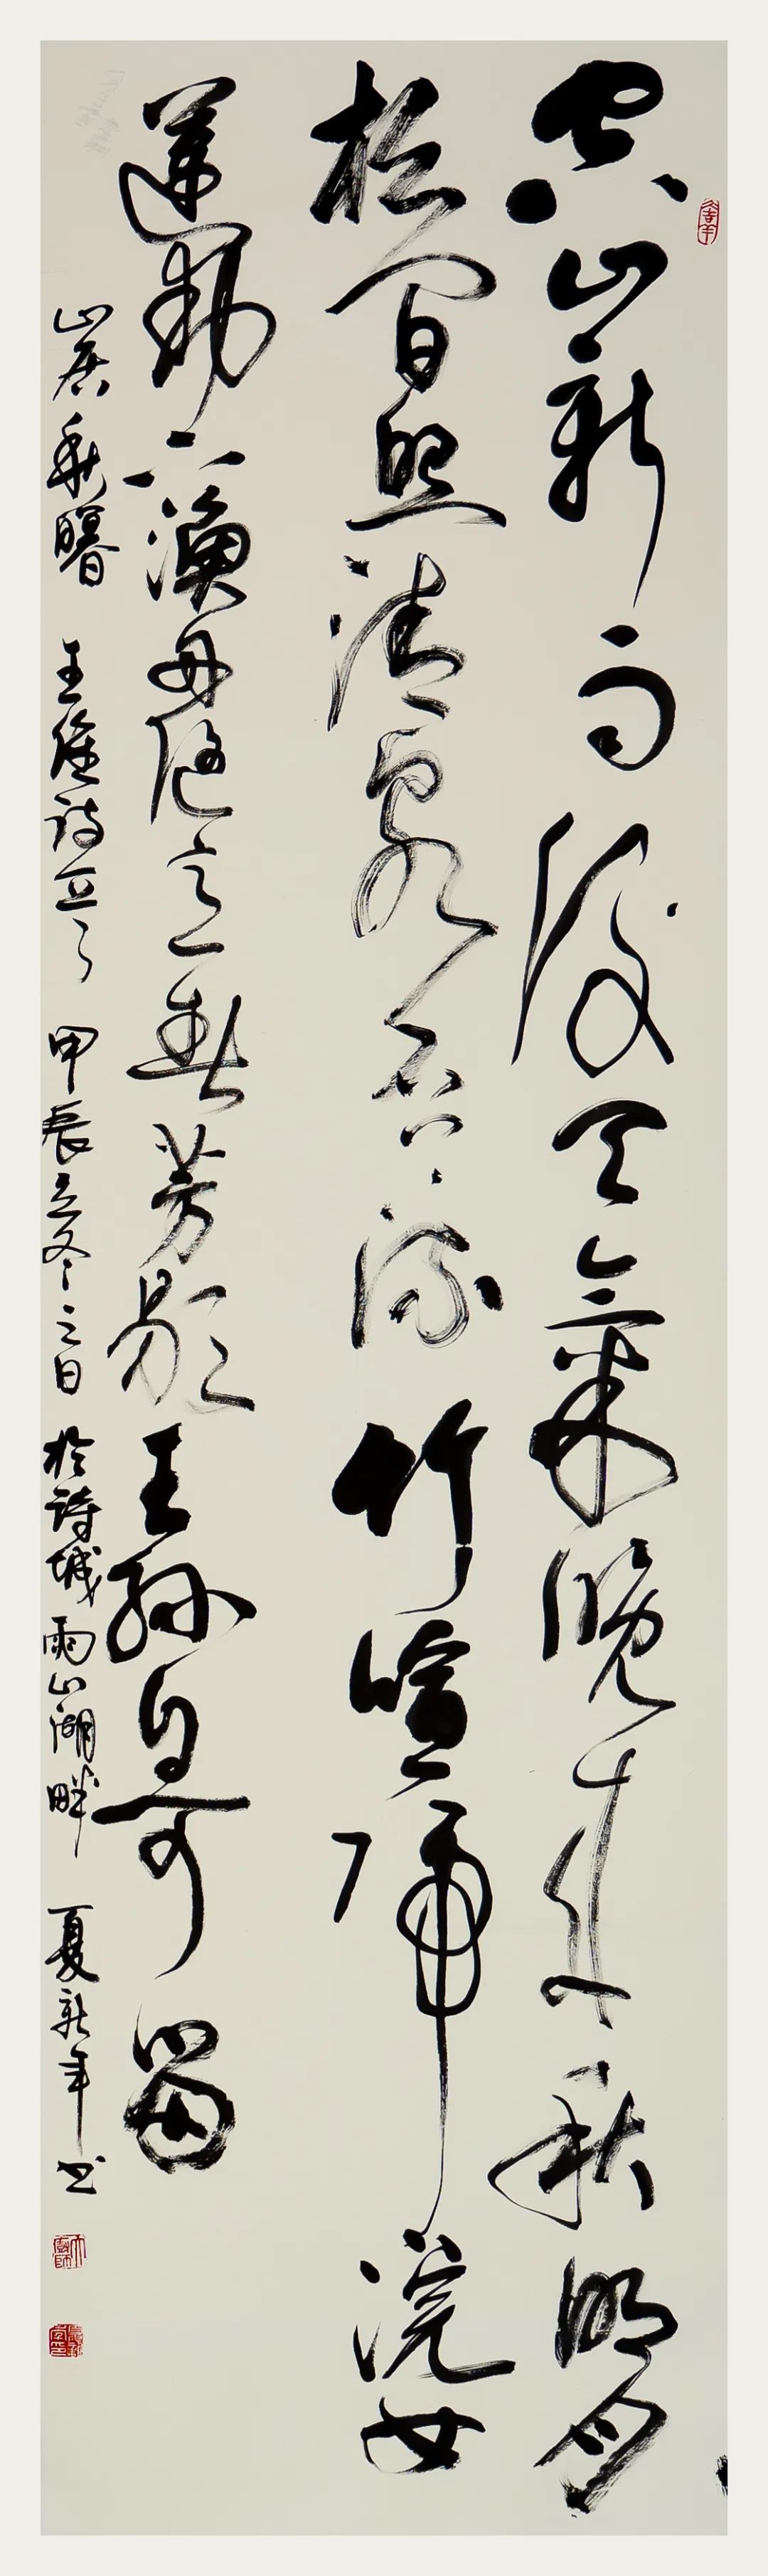 空山新雨後天氣晚来秋明月
松间照清泉石上流竹喧歸浣女
蓮動下漁舟隨意春芳歇王孫自可留
山居秋暝 王维诗 甲辰立冬之日 於詩城雨山湖畔 夏新年书